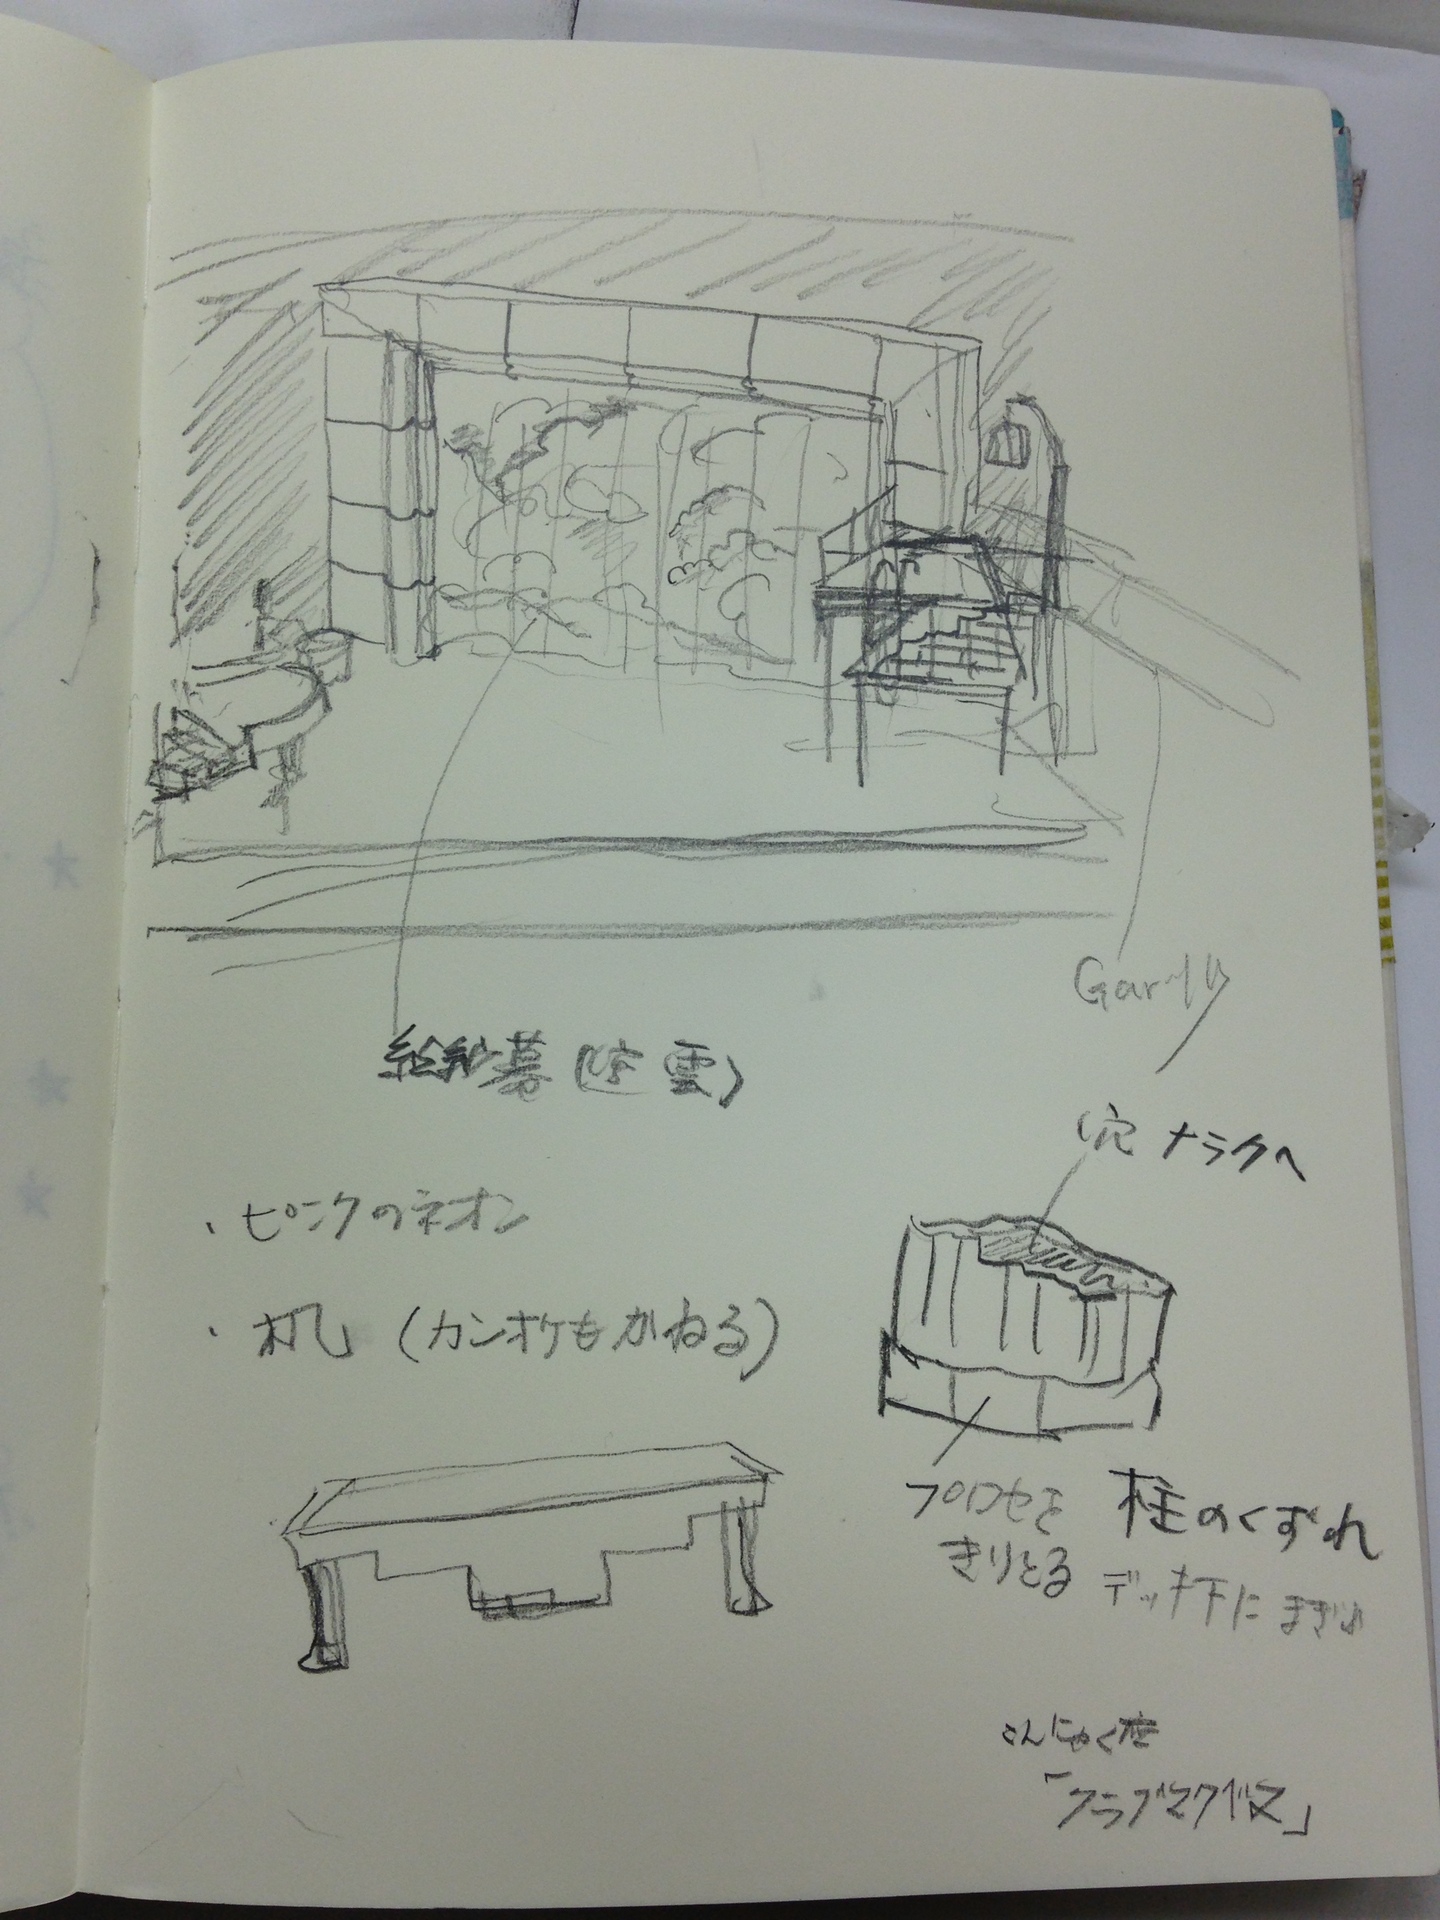 絵幕(空 雲)
穴 ナラクへ
・ピンクのネオン
・机 (カンオケもかねる)
プロセを
きりとる
柱のくずれ
デッキ下に
こんにゃく座
「クラブマクベス」